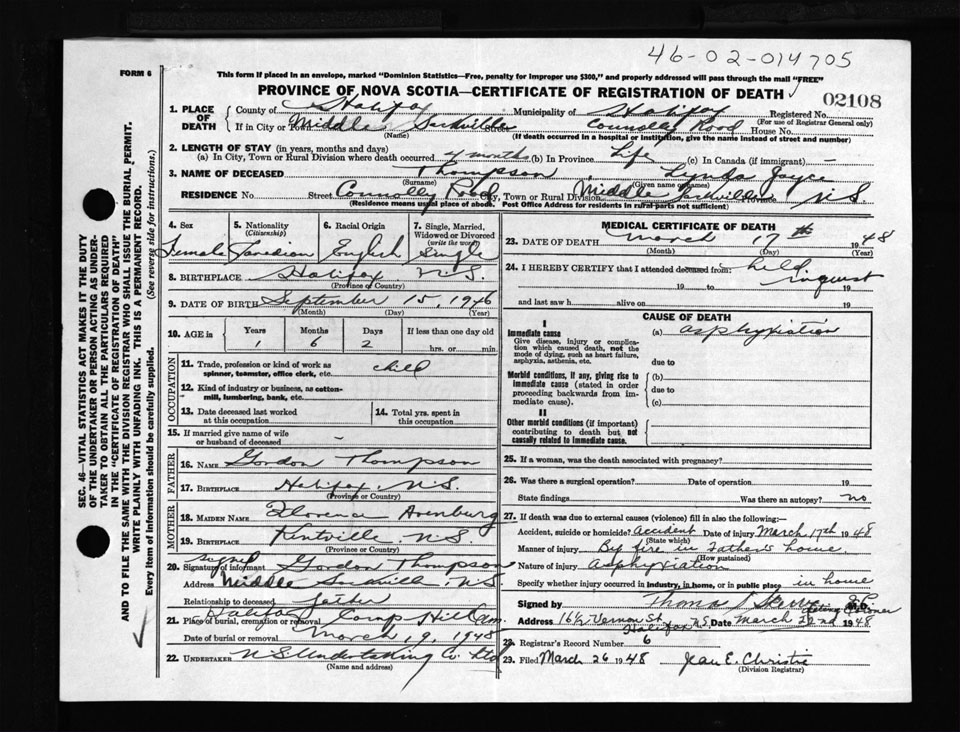 46-02-014705
FORM 6
This form if placed in an envelope, marked "Dominion Statistics—Free, penalty for improper use $300," and properly addressed will pass through the mail "FREE"
PROVINCE OF NOVA SCOTIA—CERTIFICATE OF REGISTRATION OF DEATH
02108
1. PLACE OF DEATH
County of Halifax Municipality of Halifax Registered No.
(For use of Registrar General only)
If in City or Town Middle Sackville Street Connolly Road House No.
(Name) (If death occurred in a hospital or institution, give the name instead of street and number)
2. LENGTH OF STAY (in years, months and days)
(a) In City, Town or Rural Division where death occurred 4 months (b) In Province Life (c) In Canada (if immigrant) —
3. NAME OF DECEASED Thompson Lynda Joyce
(Surname) (Given name or names)
RESIDENCE No. Street Connolly Road City, Town or Rural Division Middle Sackville Province N.S.
(Residence means usual place of abode. Post Office Address for residents in rural parts not sufficient)
4. Sex Female
5. Nationality (Citizenship) Canadian
6. Racial Origin English
7. Single, Married, Widowed or Divorced (write the word) Single
8. BIRTHPLACE Halifax N.S.
(Province or Country)
9. DATE OF BIRTH September 15, 1946
(Month) (Day) (Year)
10. AGE in Years Months Days If less than one day old
1 6 2 hrs. or min.
OCCUPATION
11. Trade, profession or kind of work as spinner, teamster, office clerk, etc. child
12. Kind of industry or business, as cotton-mill, lumbering, bank, etc.
13. Date deceased last worked at this occupation
14. Total yrs. spent in this occupation
15. If married give name of wife or husband of deceased —
FATHER
16. NAME Gordon Thompson
17. BIRTHPLACE Halifax, N.S.
(Province or Country)
MOTHER
18. MAIDEN NAME Florence Avenburg
19. BIRTHPLACE Kintville N.S.
(Province or Country)
20. Signature of informant signed Gordon Thompson
Address Middle Sackville, N.S.
Relationship to deceased father
21. Place of burial, cremation or removal Halifax Camp Hill Cem.
Date of burial or removal March 19, 1948
22. UNDERTAKER N.S. Undertaking Co. Ltd
(Name and address)
MEDICAL CERTIFICATE OF DEATH
23. DATE OF DEATH March 17th 1948
(Month) (Day) (Year)
24. I HEREBY CERTIFY that I attended deceased from: held inquest
19 to 19
and last saw h alive on 19
CAUSE OF DEATH
I
Immediate cause (a) asphyxiation
Give disease, injury or complication which caused death, not the mode of dying, such as heart failure, asphyxia, asthenia, etc.
due to
Morbid conditions, if any, giving rise to immediate cause (stated in order proceeding backwards from immediate cause).
(b)
due to
(c)
II
Other morbid conditions (if important) contributing to death but not causally related to immediate cause.
25. If a woman, was the death associated with pregnancy?
26. Was there a surgical operation? Date of operation 19
State findings Was there an autopsy? no
27. If death was due to external causes (violence) fill in also the following:—
Accident, suicide or homicide? Accident Date of injury March 17th 1948
(State which)
Manner of injury By fire in Father's home.
(How sustained)
Nature of injury Asphyxiation
Specify whether injury occurred in industry, in home, or in public place in home
Signed by M.D.
Acting Coroner
Address 16½ Vernon St Halifax N.S. Date March 22nd 1948
28. Registrar's Record Number 6
29. Filed March 26 1948 Jean E. Christie
(Division Registrar)
SEC. 46—VITAL STATISTICS ACT MAKES IT THE DUTY
OF THE UNDERTAKER OR PERSON ACTING AS UNDER-
TAKER TO OBTAIN ALL THE PARTICULARS REQUIRED
IN THE "CERTIFICATE OF REGISTRATION OF DEATH"
AND TO FILE THE SAME WITH THE DIVISION REGISTRAR WHO SHALL ISSUE THE BURIAL PERMIT.
WRITE PLAINLY WITH UNFADING INK. THIS IS A PERMANENT RECORD.
Every item of information should be carefully supplied. (See reverse side for instructions.)